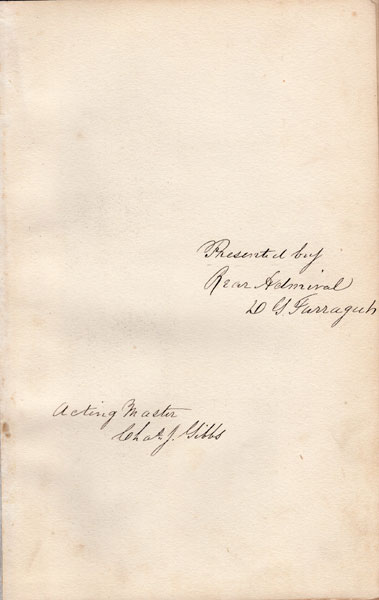 Presented by
Rear Admiral
D G. Farragut
Acting Master
Chas. J. Gibbs